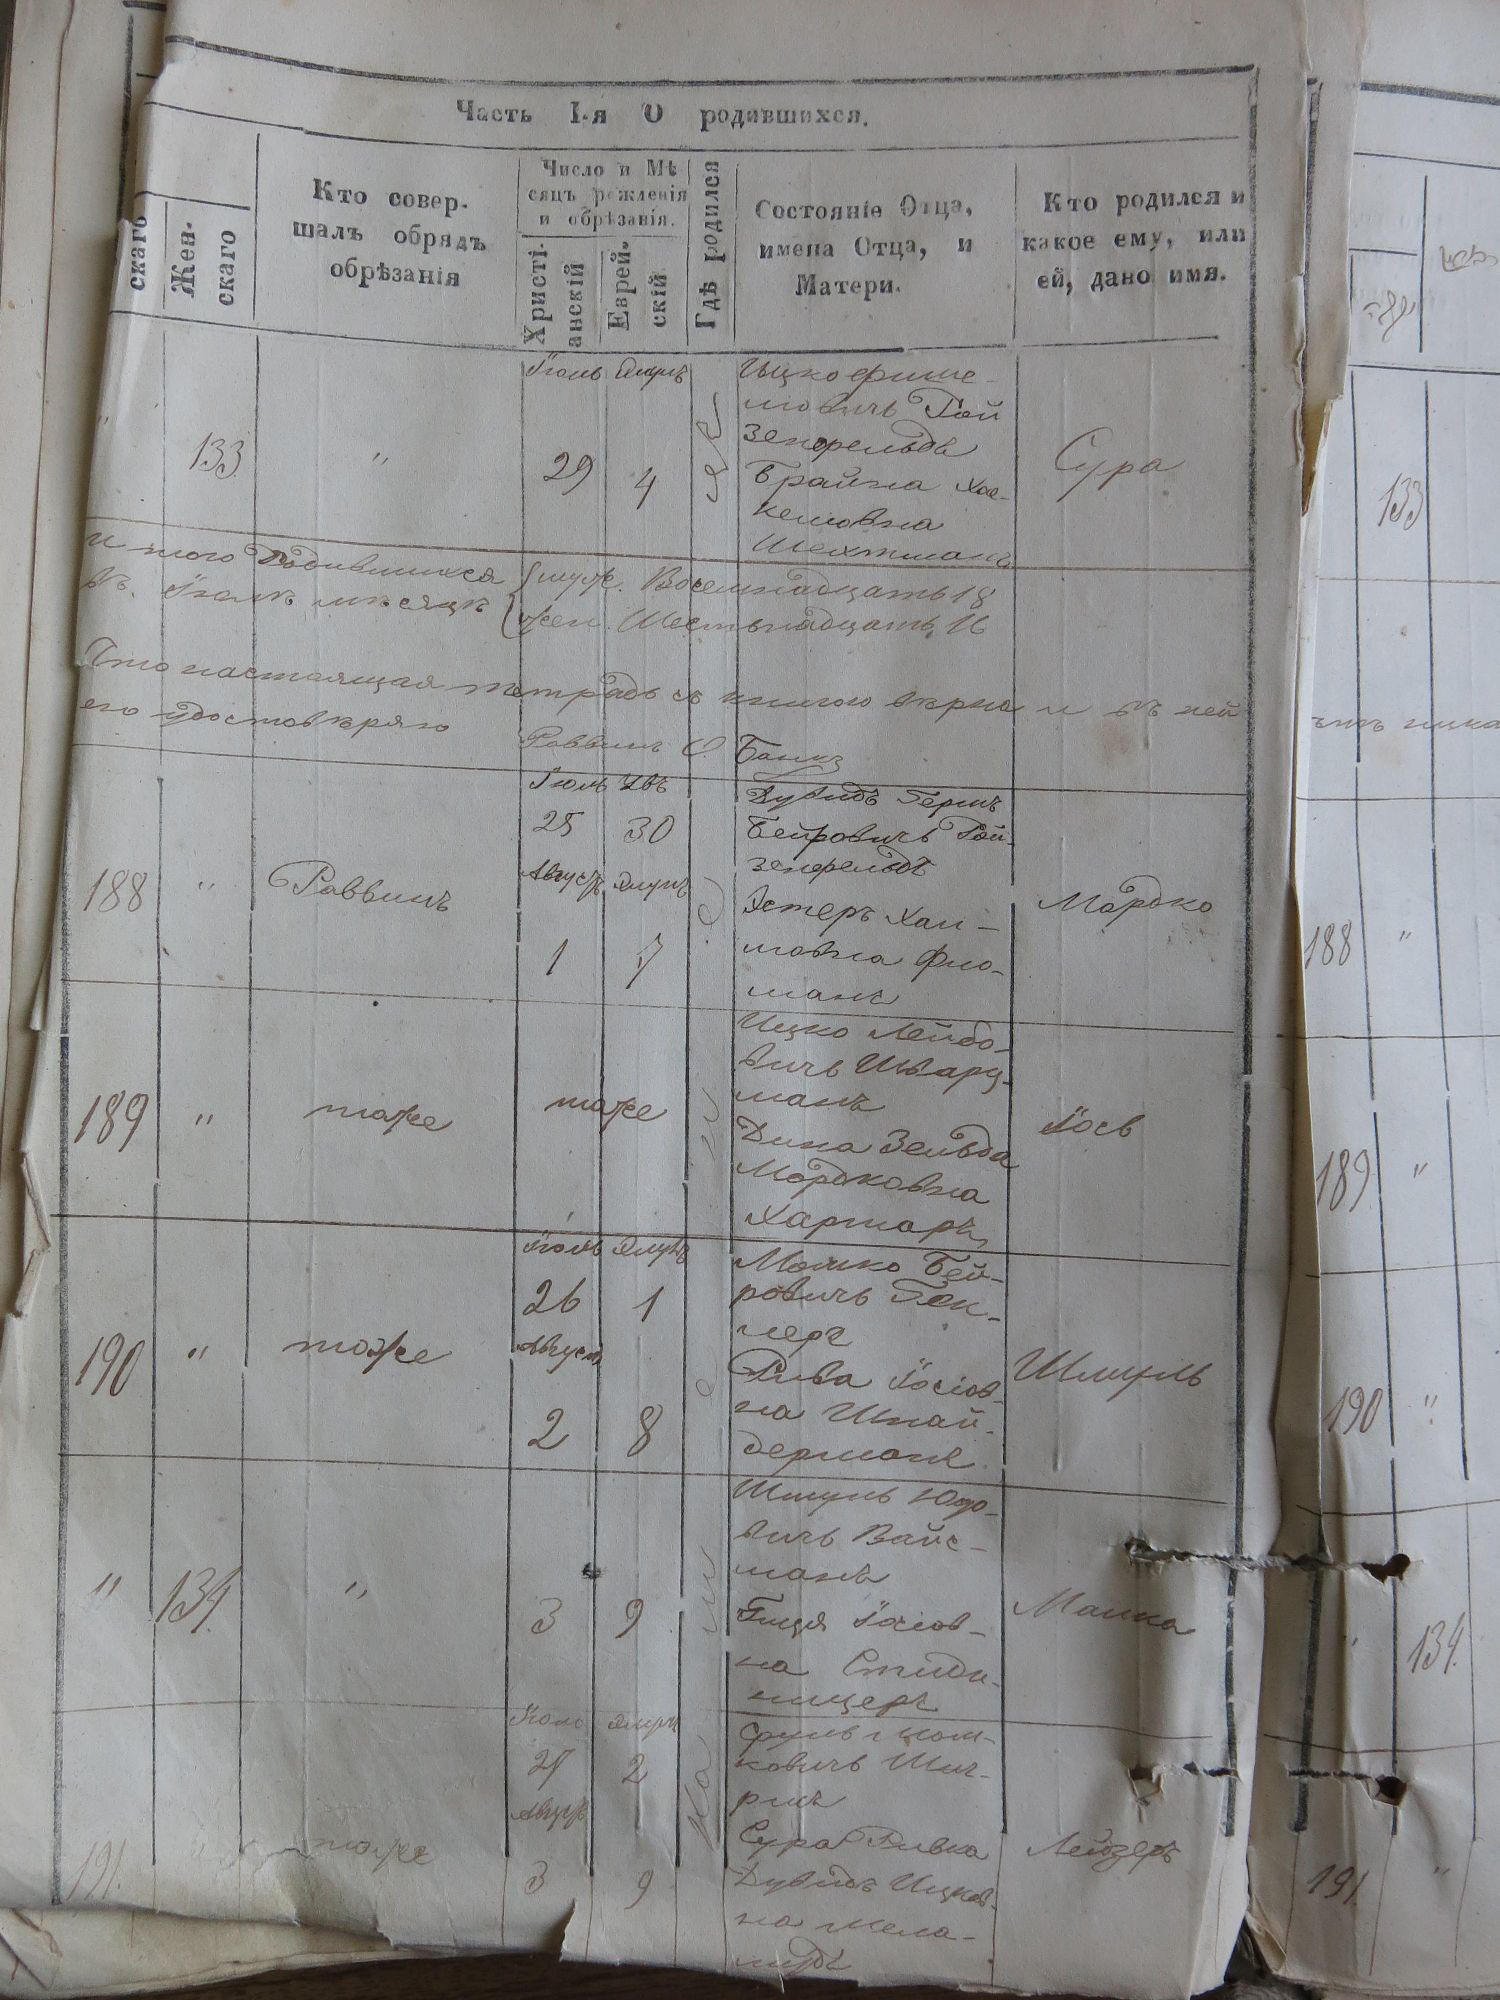 Часть I-я О родившихся.
скаго
Жен-
скаго
Кто совер-
шалъ обрядъ
обрѣзанія
Число и Мѣ
сяцъ рожденія
и обрѣзанія.
Христі-
анскій
Еврей-
скій
Гдѣ родился
Состояніе Отца,
имена Отца, и
Матери.
Кто родился и
какое ему, или
ей, дано имя.
"
133
"
Іюль
29
Элулъ
4
Ицко Фише-
мовичъ Рой
зенфельдъ
Брайна Хас-
келовна
Шехтманъ
Сура
И того Родившихся { муж. Восемнадцать 18
въ Іюлѣ мѣсяцѣ { жен. Шестьнадцать 16
Что настоящая тетрадь съ книгою вѣрна и въ ней
его удостовѣряю
Раввинъ
188
"
Раввинъ
Іюль Авъ
25 30
Августъ Элулъ
1 7
Дувидъ Гершъ
Бейровичъ Рой-
зенфельдъ
Эстеръ Хаи-
мовна Фло-
манъ
Мордко
189
"
тоже
тоже
Ицко Лейбо-
вичъ Шварц-
манъ
Дина Зельда
Мордковна
Іосъ
190
"
тоже
Іюль Элулъ
26 1
Августъ
2 8
Мошко Бей-
ровичъ Гек-
леръ
Рива Іосіов-
на Шнай-
дерманъ
Шмуль
"
134.
"
3 9
Шмуль Юдо-
вичъ Вайс-
манъ
Гитя Іосіов-
на
Малка
191.
тоже
Іюль Элулъ
27 2
Августъ
3 9
Сруль Мош-
ковичъ
Сура Ривка
Дувидъ Ицков-
на Мела-
медъ
Лейзеръ
133
188 "
189 "
190 "
" 134.
191. "